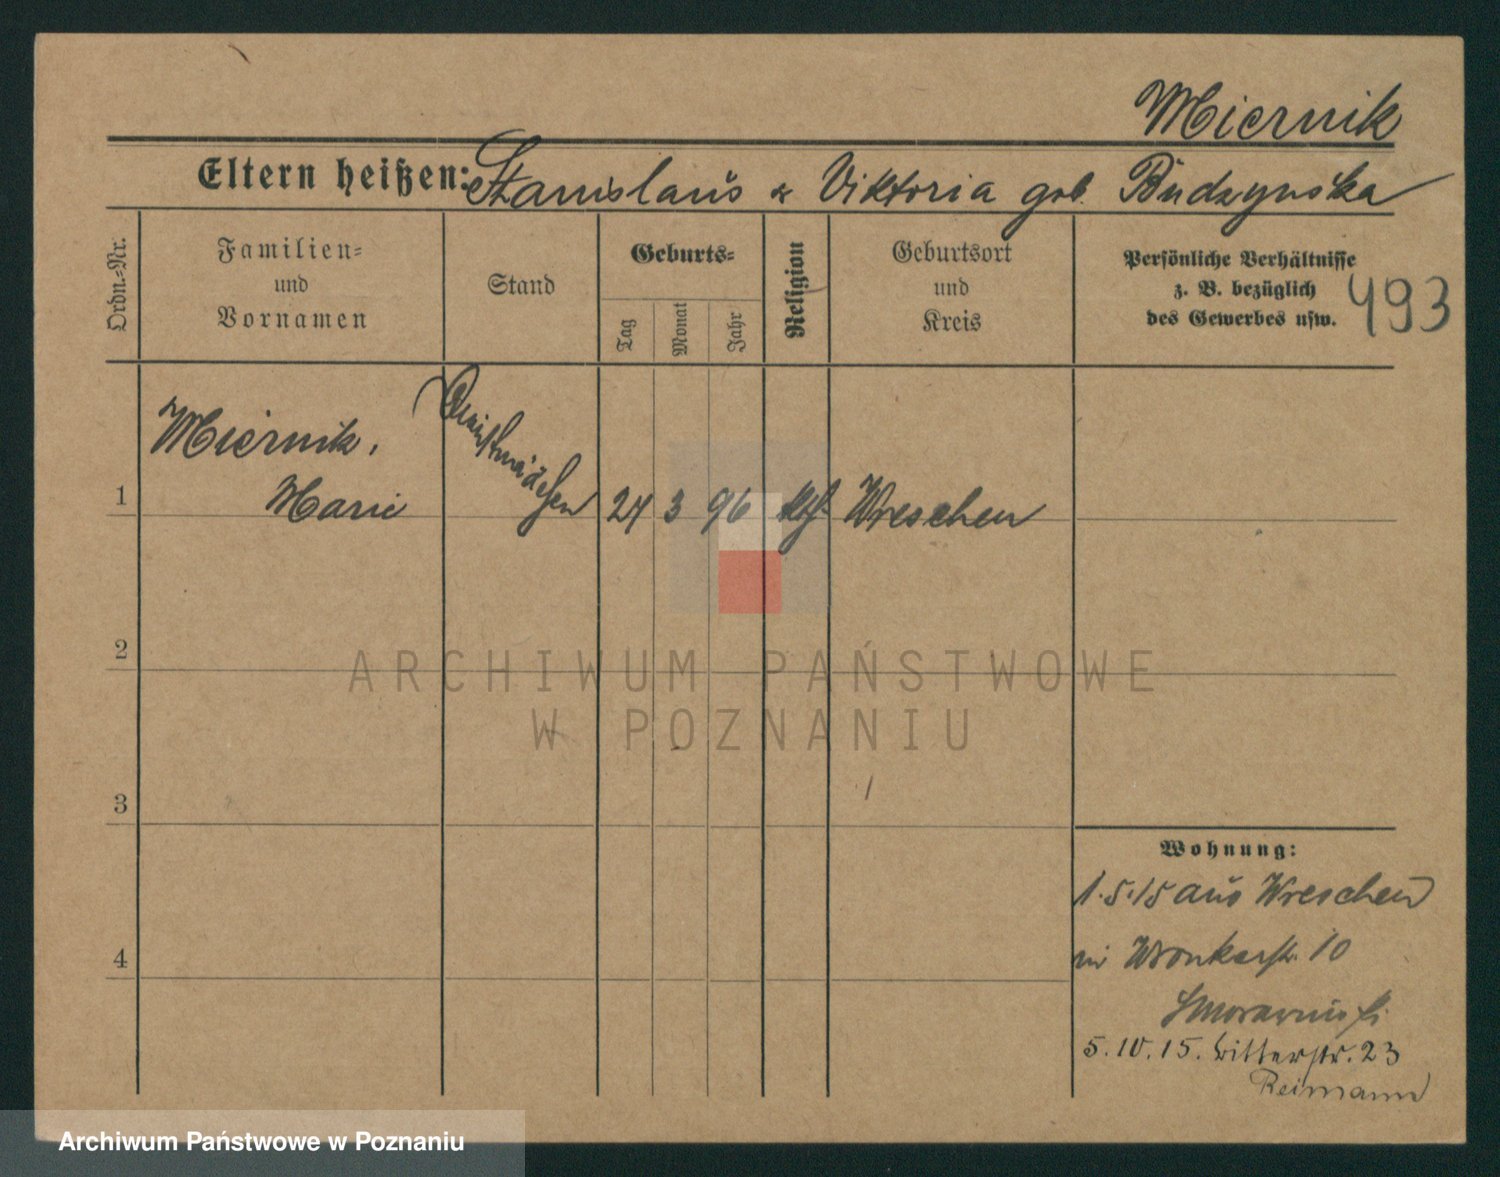 Miernik
Eltern heißen: Stanislaus & Viktoria geb. Budzynska
Ordn.-Nr.
Familien-
und
Vornamen
Stand
Geburts-
Tag
Monat
Jahr
Religion
Geburtsort
und
Kreis
Persönliche Verhältnisse
z. B. bezüglich
des Gewerbes usw.
493
Miernik,
1 Marie Dienstmädchen 24 3 96 kth Wreschen
2
3
4
ARCHIWUM PAŃSTWOWE
W POZNANIU
Wohnung:
1.5.15 aus Wreschen
in Wronkerstr. 10
5.10.15. Ritterstr. 23
Reimann
Archiwum Państwowe w Poznaniu